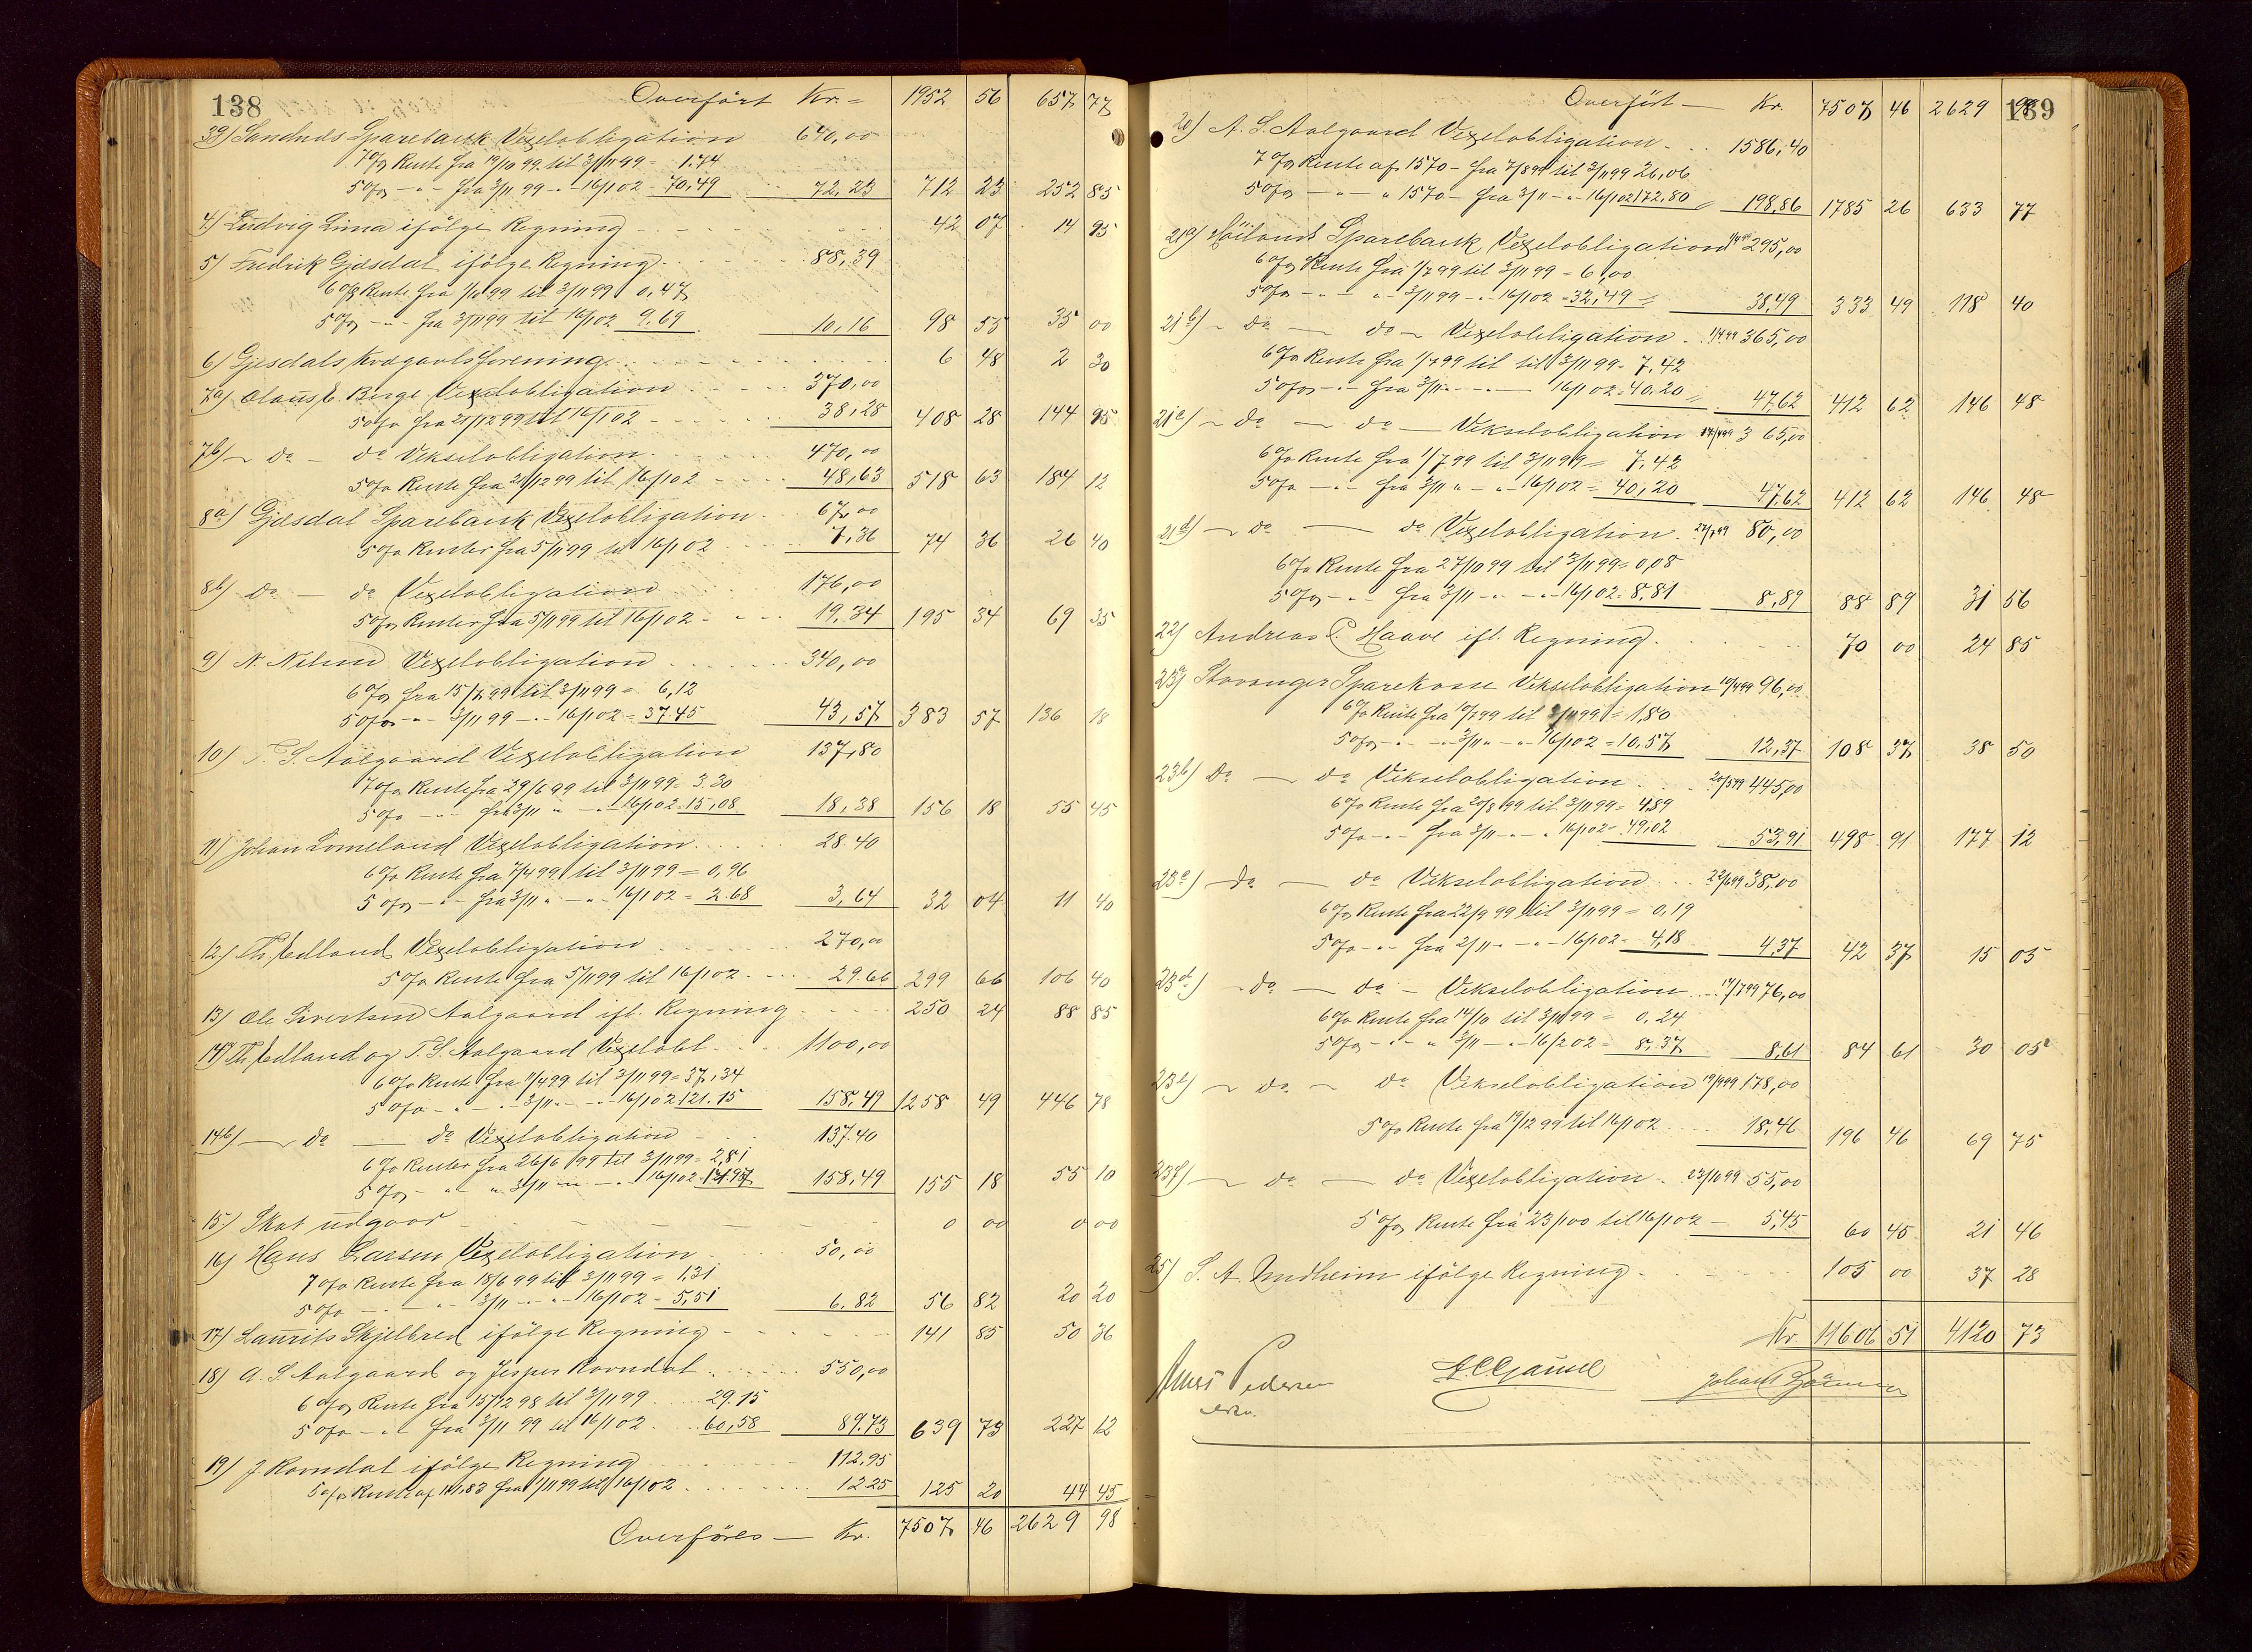 138
Overført Kr = 1952 56 657 77
39) Sandnds Sparebank Vexelobligation 640,00
7 % Rente fra 19/10 99 til 3/11 99 = 1.74
5 % - " - fra 3/11 99 - " - 16/1 02 - 70,49 72,23 712 23 252 85
4.) Ludvig Lima ifölge Regning 42 07 14 95
5) Fredrik Gjesdal ifölge Regning 88,39
6 % Rente fra 1/10 99 til 3/11 99 0,47
5 % - " - fra 3/11 99 til 16/1 02 9.69 10,16 98 55 35 00
6) Gjesdals Kvægavlsforening 6 48 2 30
7a) Claus E. Berge Vexelobligation 370,00
5 % fra 21/12 99 til 16/1 02 38,28 408 28 144 95
7b) - do - do Vekselobligation 470,00
5 % Rente fra 21/12 99 til 16/1 02 48,63 518 63 184 12
8a) Gjesdal Sparebank Vexelobligation 67,00
5 % Renter fra 5/11 99 til 16/1 02 7,36 74 36 26 40
8b) do - do Vexelobligation 176,00
5 % Renter fra 5/11 99 til 16/1 02 19,34 195 34 69 35
9) N. Nilsen Vexelobligation 340,00
6 % fra 15/7 99 til 3/11 99 = 6,12
5 % - " - 3/11 99 - " - 16/1 02 = 37.45 43,57 383 57 136 18
10) T. S. Aalgaard Vexelobligation 137,80
7 % Rente fra 29/6 99 til 3/11 99 = 3.30
5 % - " - fra 3/11 " - " 16/1 02 15,08 18,38 156 18 55 45
11) Johan Lomeland Vexelobligation 28.40
6 % Rente fra 7/4 99 til 3/11 99 = 0,96
5 % - " - fra 3/11 " - " - 16/1 02 = 2.68 3,64 32 04 11 40
12.) Th. Edland Vexelobligation 270,00
5 % Rente fra 5/11 99 til 16/1 02 29.66 299 66 106 40
13) Ole Sivertsen Aalgaard ifl. Regning 250 24 88 85
14a) Th. Edland og T. S. Aalgaard Vexelobl. 1100,00
6 % Rente fra 11/4 99 til 3/11 99 = 37,34
5 % - " - " - 3/11 " - " - 16/1 02 121.15 158,49 1258 49 446 78
14b) - do - do Vexelobligation - 137.40
6 % Renter fra 26/6 99 til 3/11 99 = 2,81
5 % - " " 3/11 - " - " 16/1 02 158,49 155 18 55 10
15) Skat udgaar 0 00 0 00
16) Hans Larsen Vexelobligation 50,00
7 % Rente fra 18/6 99 til 3/11 99 = 1,31
5 % - " - " - 3/11 - " - " - 16/1 02 = 5,51 6,82 56 82 20 20
17) Laurits Skjelbred ifölge Regning 141 85 50 36
18) A. S Aalgaard og Jesper Ravndal 550,00
6 % Rente fra 15/12 98 til 3/11 99 29.15
5 % - " fra 3/11 99 til 16/1 02 60,58 89.73 639 73 227 12
19) J Ravndal ifölge Regning 112,95
5 % Rente af 111,83 fra 1/11 99 til 16/1 02 12 25 125 20 44 45
Overföres - Kr. 7507 46 2629 98
139
Overført - Kr. 7507 46 2629 98
20) A. S. Aalgaard Vexelobligation 1586,40
7 % Rente af 1570 - fra 7/8 99 til 3/11 99 26,06
5 % - " - " 1570 - fra 3/11 - " - 16/1 02 172,80 198,86 1785 26 633 77
21a) Höilands Sparebank Vexelobligation 1/4 99 295,00
6 % Rente fra 1/7 99 til 3/11 99 = 6,00
5 % - " - " - 3/11 99 - " - 16/1 02 = 32,49 38,49 333 49 118 40
21b) - do - do - Vexelobligation 1/4 99 365,00
6 % Rente fra 1/7 99 til til 3/11 99 - 7,42
5 % - " - fra 3/11 " - " - 16/1 02 = 40,20 47,62 412 62 146 48
21c) - do - do - Vekselobligation 14/4 99 365,00
6 % Rente fra 1/7 99 til 3/11 99 = 7,42
5 % - " - fra 3/11 " - " - 16/1 02 = 40,20 47,62 412 62 146 48
21d) - do - do Vexelobligation 27/7 99 80,00
6 % Rente fra 27/10 99 til 3/11 99 = 0,08
5 % - " - fra 3/11 - " - " - 16/1 02 = 8,81 8,89 88 89 31 56
22) Andreas P. Haave ifl. Regning 70 00 24 85
23a) Stavanger Sparekasse Vekselobligation 10/4 99 96,00
6 % Rente fra 10/7 99 til 3/11 99 = 1,80
5 % - " - " 3/11 " - " - 16/1 02 = 10,57 12,37 108 37 38 50
23b) Do - do Vekselobligation 20/5 99 445,00
6 % Rente fra 20/8 99 til 3/11 99 = 4,89
5 % - " - fra 3/11 - " - " 16/1 02 = 49,02 53,91 498 91 177 12
23c) - do - do Vekselobligation 22/6 99 38,00
6 % Rente fra 22/9 99 til 3/11 99 = 0,19
5 % - " - fra 2/11 - " - " - 16/1 02 = 4,18 4,37 42 37 15 05
23d) - do - do - Vekselobligation 14/7 99 76,00
6 % Rente fra 14/10 til 3/11 99 = 0,24
5 % - " - " 3/11 - " - 16/2 02 = 8,37 8,61 84 61 30 05
23e) - do - do Vekselobligation 19/9 99 178,00
5 % Rente fra 19/12 99 til 16/1 02 18,46 196 46 69 75
23f) - do - do Vexelobligation 23/10 99 55,00
5 % Rente fra 23/1 00 til 16/1 02 - 5,45 60 45 21 46
25) S. A. Undheim ifölge Regning 105 00 37 28
Kr. 11606 51 4120 73
Pedersen